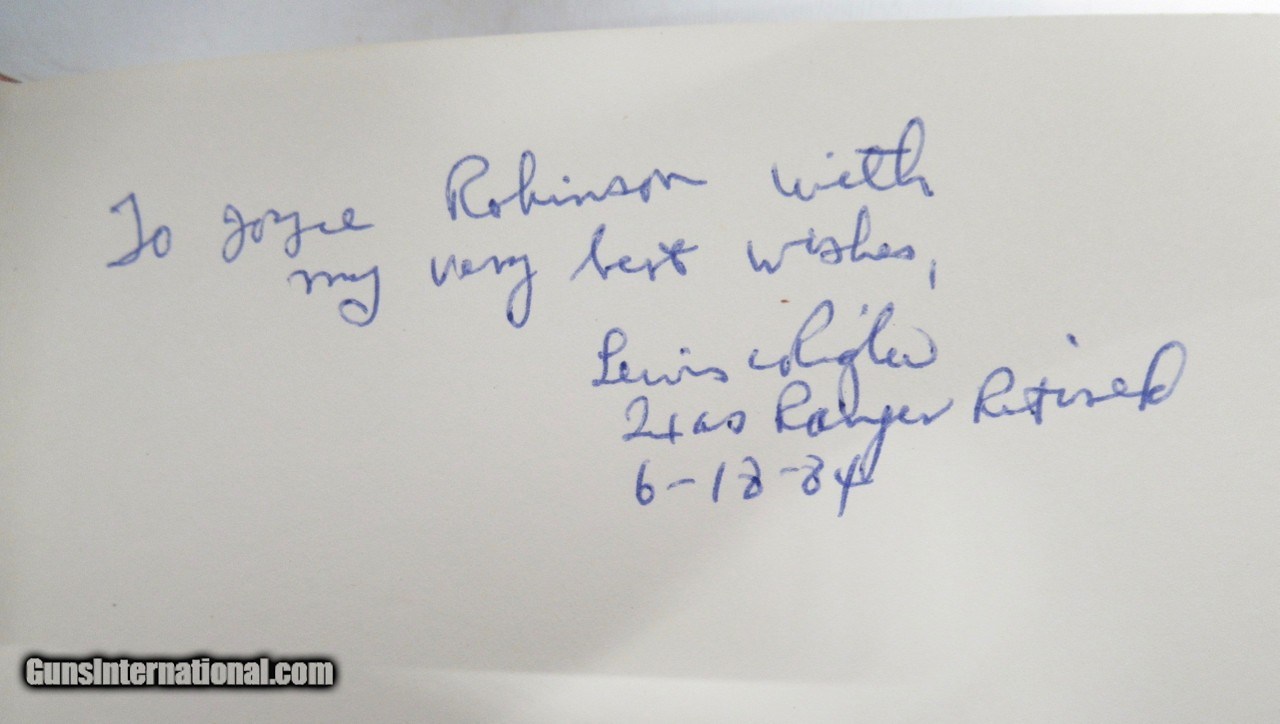 To Joyce Robinson with
my very best wishes,
Lewis C Rigler
Texas Ranger Retired
6-18-84
GunsInternational.com